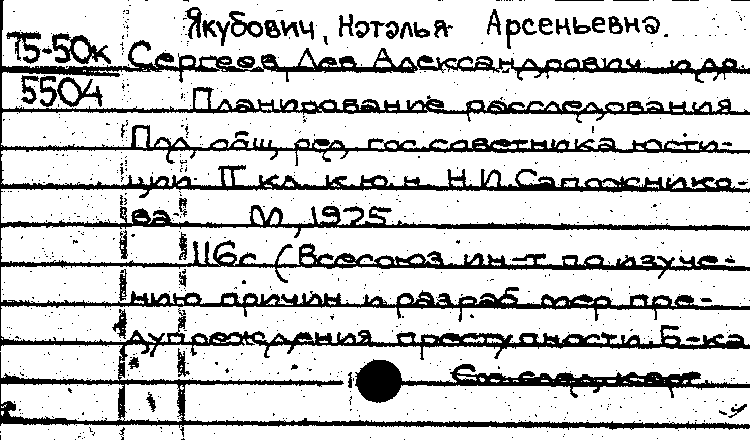 Якубович, Наталья Арсеньевна.
75-50к Сергеев Лев Александрович и др.
5504 Планирование расследования
Под общ, ред, гос советника юсти-
ции II кл. к.ю.н. Н.И. Сапожнико-
ва М, 1975.
116с (Всесоюз. ин-т по изуче-
нию причин и разраб мер пре-
дупреждения преступности. Б-ка
См. след, карт.